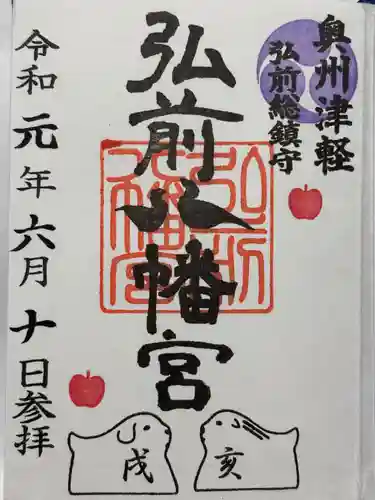 奥州津軽
弘前総鎮守
弘前八幡宮
弘前八幡宮
令和元年六月十日参拝
戌
亥